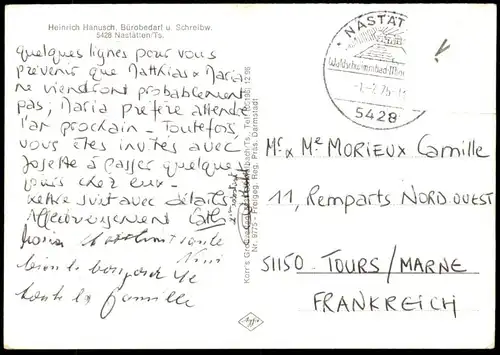 Heinrich Hanusch, Bürobedarf u. Schreibw.
5428 Nastätten/Ts.
quelques lignes pour vous
prévenir que Matthias & Maria
ne viendront probablement
pas; Maria préfère attendre
l'an prochain - Toutefois,
vous êtes invités avec
Josette à passer quelques
jours chez eux -
lettre suit avec détails.
Affectueusement Cath
Nini
bien le bonjour de
toute la famille
Nr. 9775 - Freigeg. Reg. Präs. Darmstadt
NASTÄT
5428
Mr & Me MORIEUX Camille
11, Remparts NORD-OUEST
51150 - TOURS/MARNE
FRANKREICH
Agfa